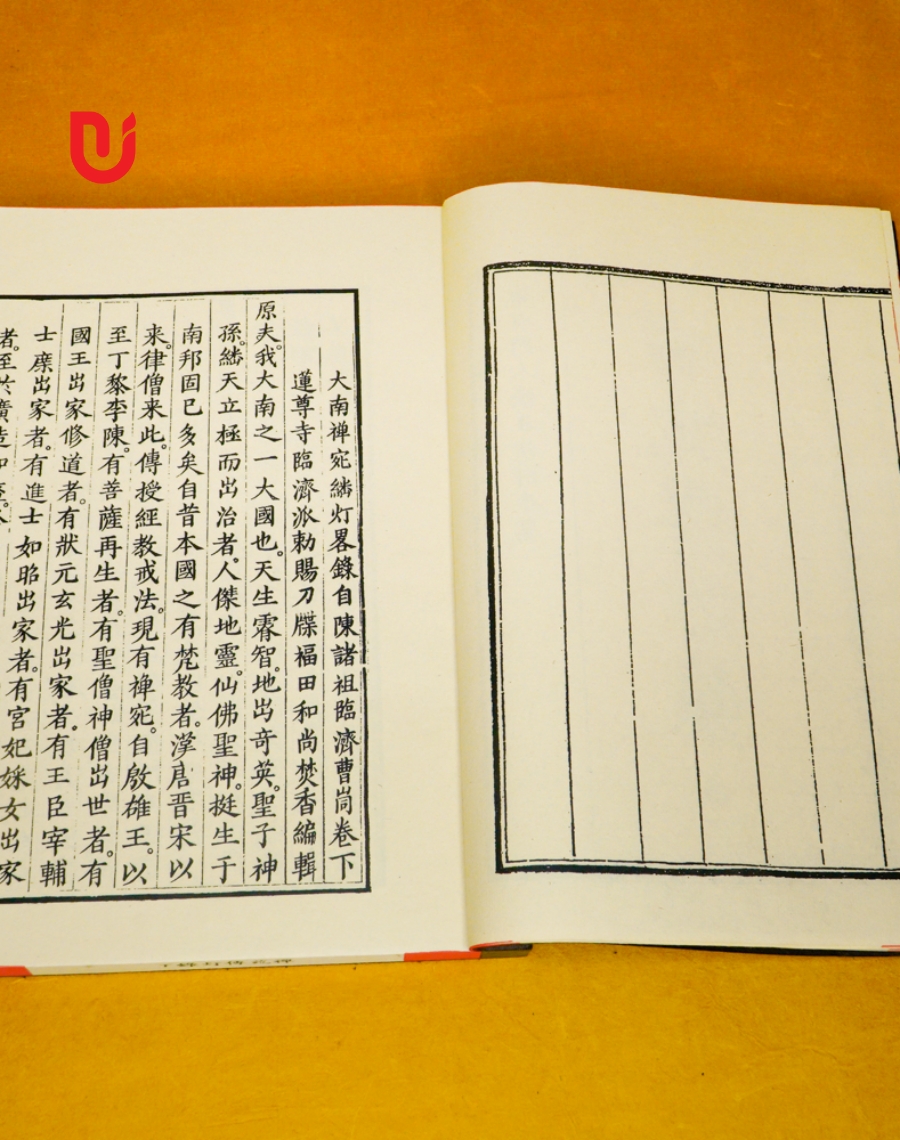 大南禅宛繗灯畧錄自陳諸祖臨濟曹峝卷下
蓮尊寺臨濟派勅賜刀牒福田和尚焚香編輯
原夫。我大南之一大國也。天生睿智。地出奇英。聖子神
孫。繗天立極而出治者。人傑地靈。仙佛聖神。挺生于
南邦固已多矣自昔本國之有梵教者。漢唐晋宋以
来。律僧来此。傳授經教戒法。現有禅宛。自啟雄王。以
至丁黎李陳。有菩薩再生者。有聖僧神僧出世者。有
國王出家修道者。有狀元玄光出家者。有王臣宰輔
士庶出家者。有進士如昭出家者。有宮妃婇女出家
者。至於廣造